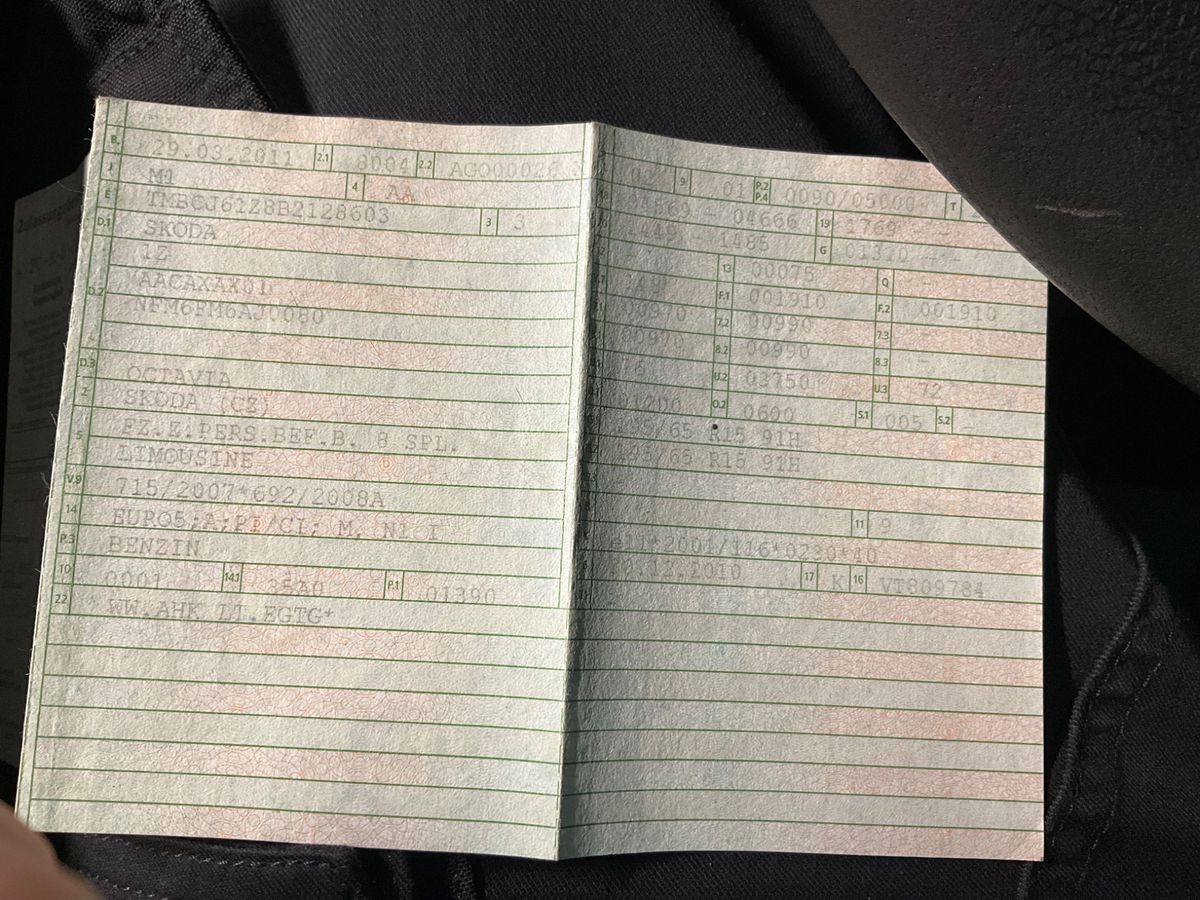 B. 29.03.2011 2.1 8004 2.2 AGO00026
J M1 4 AA
E TMBCJ61Z8B2128603 3 3
D.1 SKODA
1Z
D.2 AACAXAX01
NFM6FM6AJ0080
D.3 OCTAVIA
2 SKODA (CZ)
5 FZ.Z.PERS.BEF.B. 8 SPL.
LIMOUSINE
V.9 715/2007*692/2008A
14 EURO5;A;PI/CI; M, N1 I
P.3 BENZIN
10 0001 14.1 35A0 P.1 01390
22 WW.AHK LT.EGTG*
02 9 01 P.2 P.4 0090/05000 T
04569 - 04666 19 1769 - -
- 1485 G 01370 - -
13 00075 Q -
F.1 001910 F.2 001910
00970 7.2 00990 7.3 -
00970 8.2 00990 8.3 -
6 U.2 03750 U.3 72
01200 O.2 0600 S.1 005 S.2 -
195/65 R15 91H
195/65 R15 91H
11 9
e11*2001/116*0230*40
.12.2010 17 K 16 VT809784